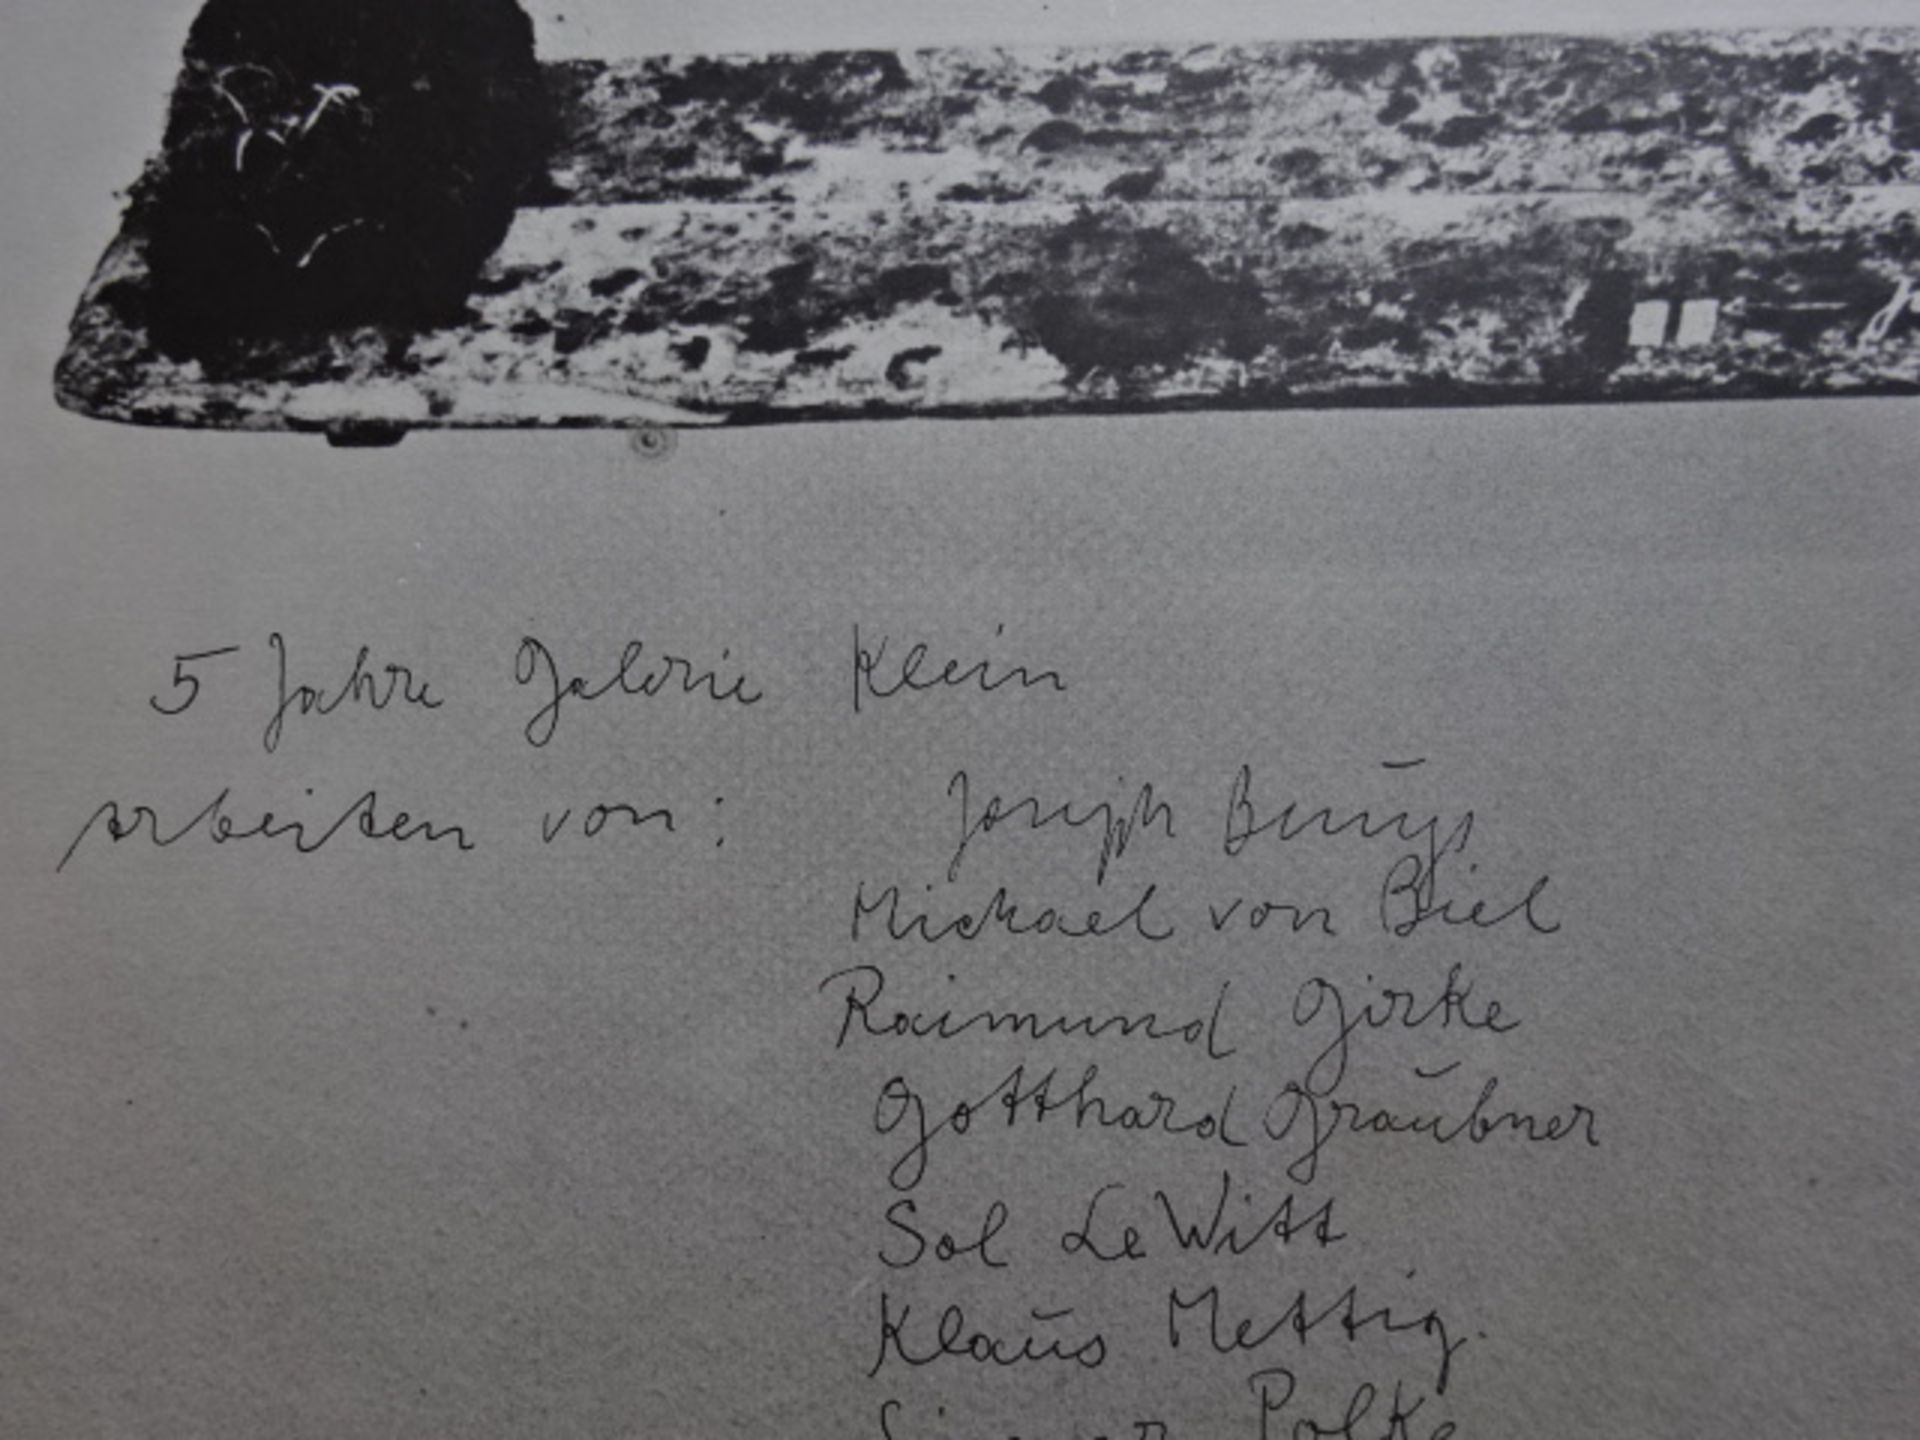 5 Jahre Galerie Klein
Arbeiten von: Joseph Beuys
Michael von Biel
Raimund Girke
Gotthard Graubner
Sol LeWitt
Klaus Mettig.
Polke